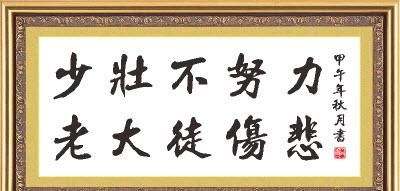 少壯不努力
老大徒傷悲
甲午年秋月書